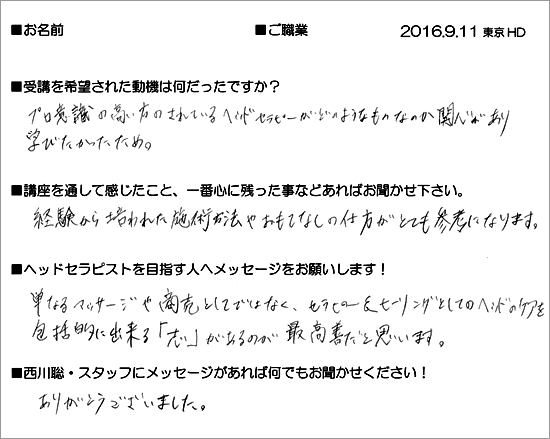 ■お名前 ■ご職業 2016.9.11 東京HD
■受講を希望された動機は何だったですか？
プロ意識の高い方のされているヘッドセラピーがどのようなものなのか関心があり
学びたかったため。
■講座を通して感じたこと、一番心に残った事などあればお聞かせ下さい。
経験から培われた施術方法やおもてなしの仕方がとても参考になります。
■ヘッドセラピストを目指す人へメッセージをお願いします！
単なるマッサージや商売としてではなく、セラピー＆ヒーリングとしてのヘッドのケアを
包括的に出来る「志」があるのが最高善だと思います。
■西川聡・スタッフにメッセージがあれば何でもお聞かせください！
ありがとうございました。